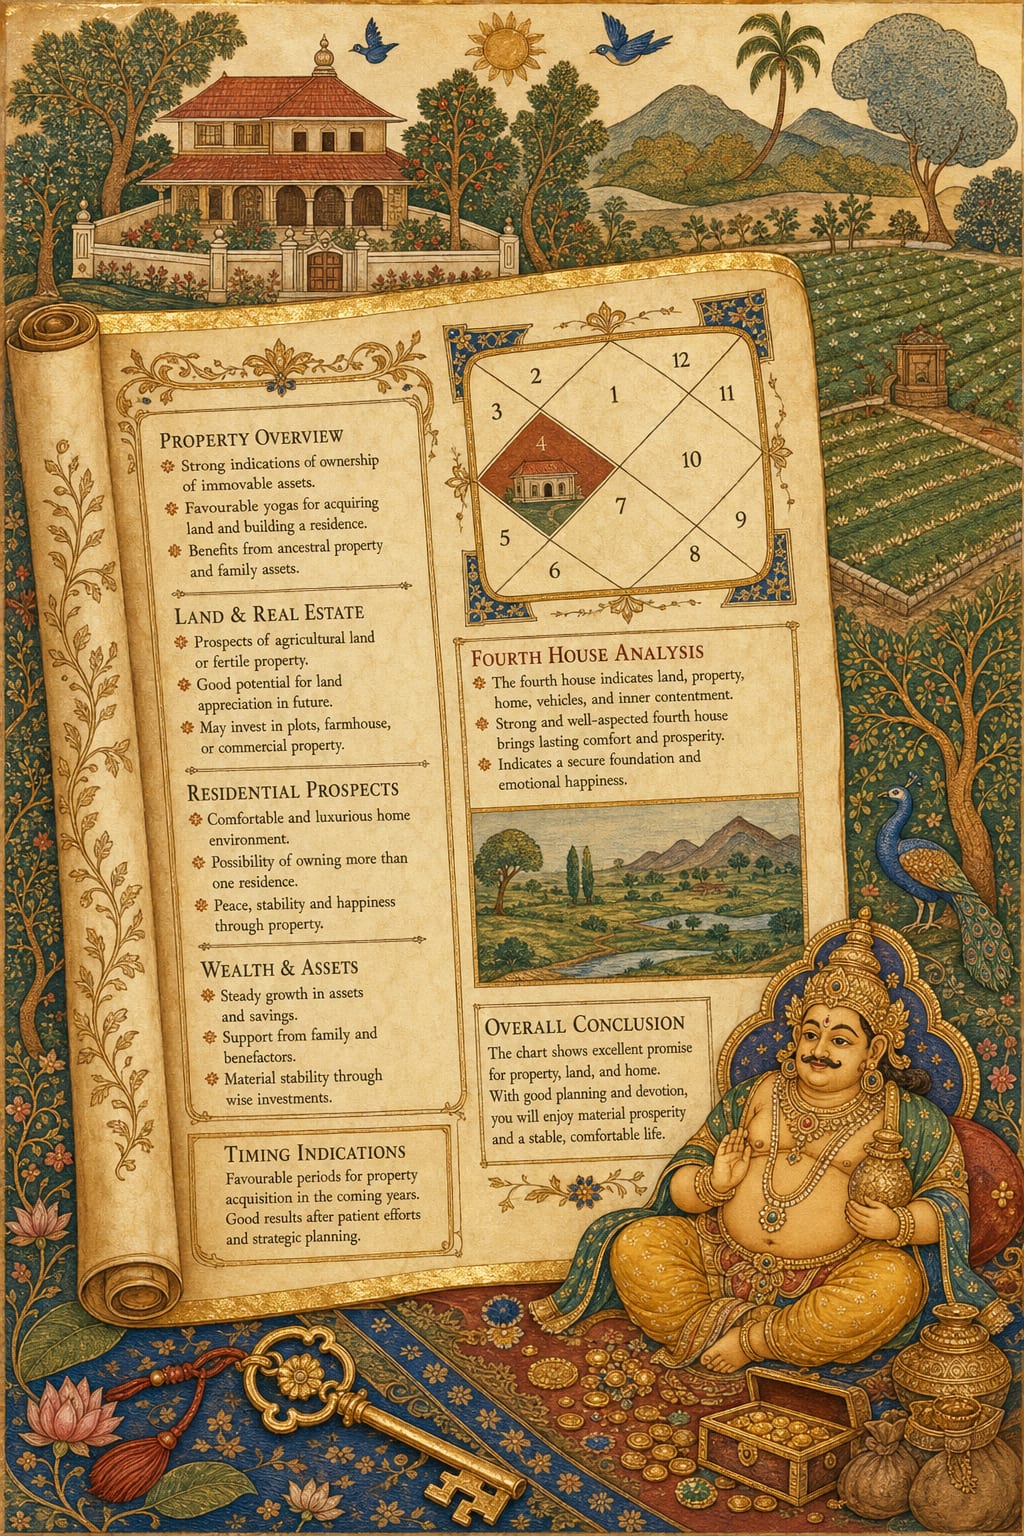 PROPERTY OVERVIEW
Strong indications of ownership
of immovable assets.
Favourable yogas for acquiring
land and building a residence.
Benefits from ancestral property
and family assets.
LAND & REAL ESTATE
Prospects of agricultural land
or fertile property.
Good potential for land
appreciation in future.
May invest in plots, farmhouse,
or commercial property.
RESIDENTIAL PROSPECTS
Comfortable and luxurious home
environment.
Possibility of owning more than
one residence.
Peace, stability and happiness
through property.
WEALTH & ASSETS
Steady growth in assets
and savings.
Support from family and
benefactors.
Material stability through
wise investments.
TIMING INDICATIONS
Favourable periods for property
acquisition in the coming years.
Good results after patient efforts
and strategic planning.
12
2
1
11
3
4
10
7
9
5
8
6
FOURTH HOUSE ANALYSIS
The fourth house indicates land, property,
home, vehicles, and inner contentment.
Strong and well-aspected fourth house
brings lasting comfort and prosperity.
Indicates a secure foundation and
emotional happiness.
OVERALL CONCLUSION
The chart shows excellent promise
for property, land, and home.
With good planning and devotion,
you will enjoy material prosperity
and a stable, comfortable life.